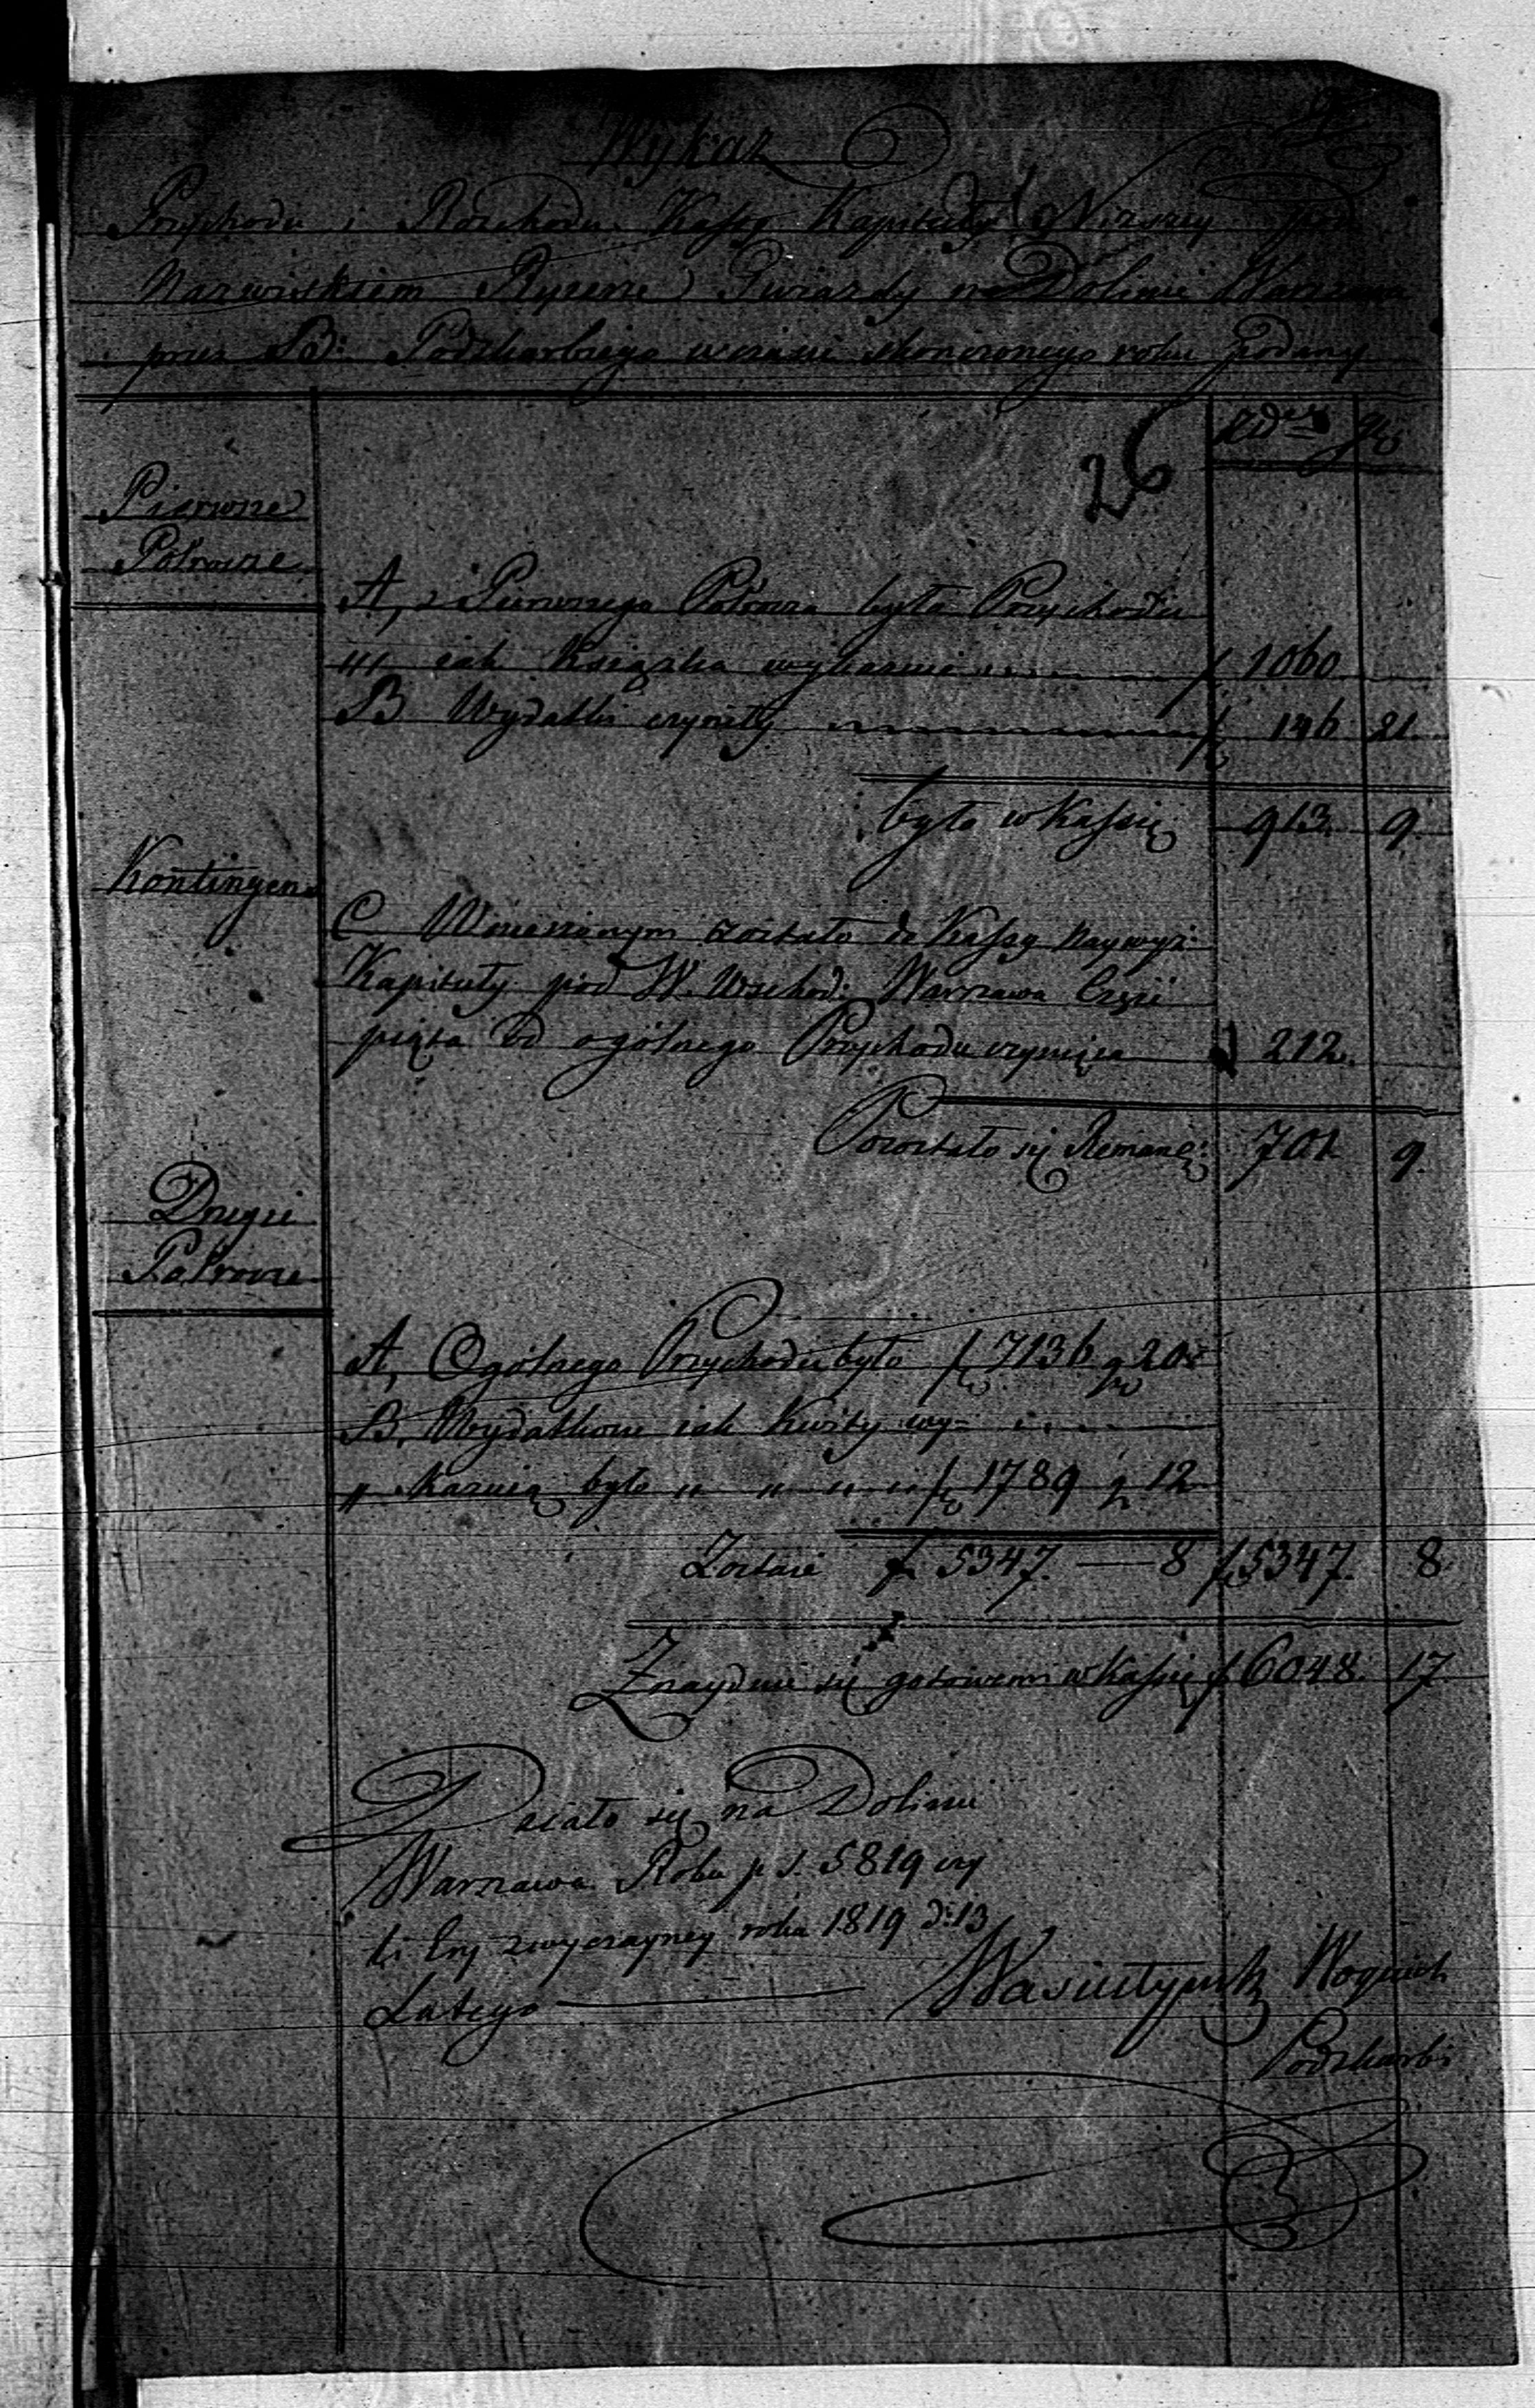 Wykaz
Przychodu i Rozchodu Kassy Kapituły Niższey pod
Nazwiskiem Rycerze Gwiazdy na Dolinie Warszawa
przez B: Podskarbiego w czasie skonczonego roku podany
złtch gr
26
Pierwsze
Potrocze
A, z Pierwszego Potrocza było Przychodu
"" iak Książka wykazuie f 1060
B Wydatki czyniły f 146 21
było w Kassie 913 9
Kontingens
C Wniessionym zostało do Kassy Naywyż:
Kapituły pod W. Wschod: Warszawa Część
piąta od ogólnego Przychodu czyniąca f 212
Pozostało się Remane: 701 9
Drugie
Potrocze
A, Ogólnego Przychodu było f 7136 gr 20
B, Wydatkow iak Kwity wy-
" kazuią było " " " " f 1789 g 12
Zostaie f 5347. — 8 f 5347. 8
Znayduie się gotowemi w Kassie f 6048. 17
Działo się na Dolinie
Warszawa Roku p. s. 5819 czy
li Ery zwyczayney roku 1819 d: 13
Lutego — Wasiutyński Woyciech
Podskarbi